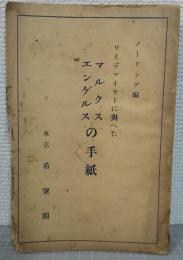 メーリング編
ワイデマイヤーに与へた
マルクス
エンゲルス の手紙
東京 希望閣